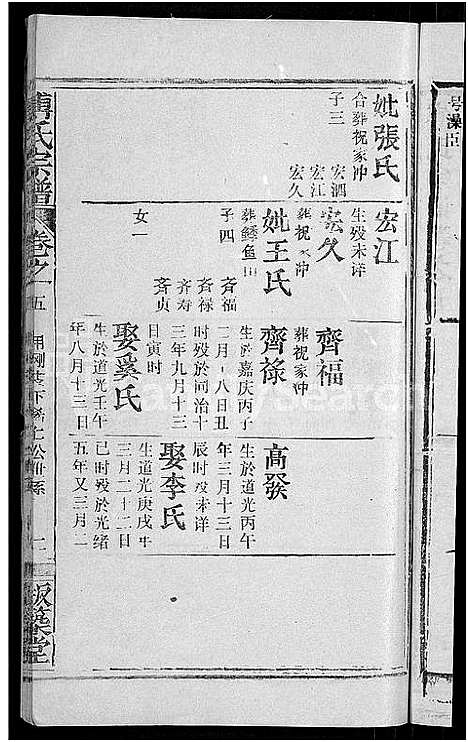 号澡臣
妣張氏
合葬祝家冲
子三
宏泗
宏江
宏久
宏江
生殁未详
宏久
葬祝冲
妣王氏
葬鳝鱼
子四
齐福
齐禄
齐寿
齐贞
女一
齊福
葬祝家冲
齊祿
生於嘉庆丙子
二月十八日丑
时殁於同治十
三年九月十三
日寅时
娶奚氏
生於道光壬午
年八月十三日
高發
生於道光丙午
年三月十三日
辰时殁未详
娶李氏
生道光庚戌年
三月二十二日
巳时殁於光绪
五年又三月二
傅氏宗譜
卷之
五
二
版築堂